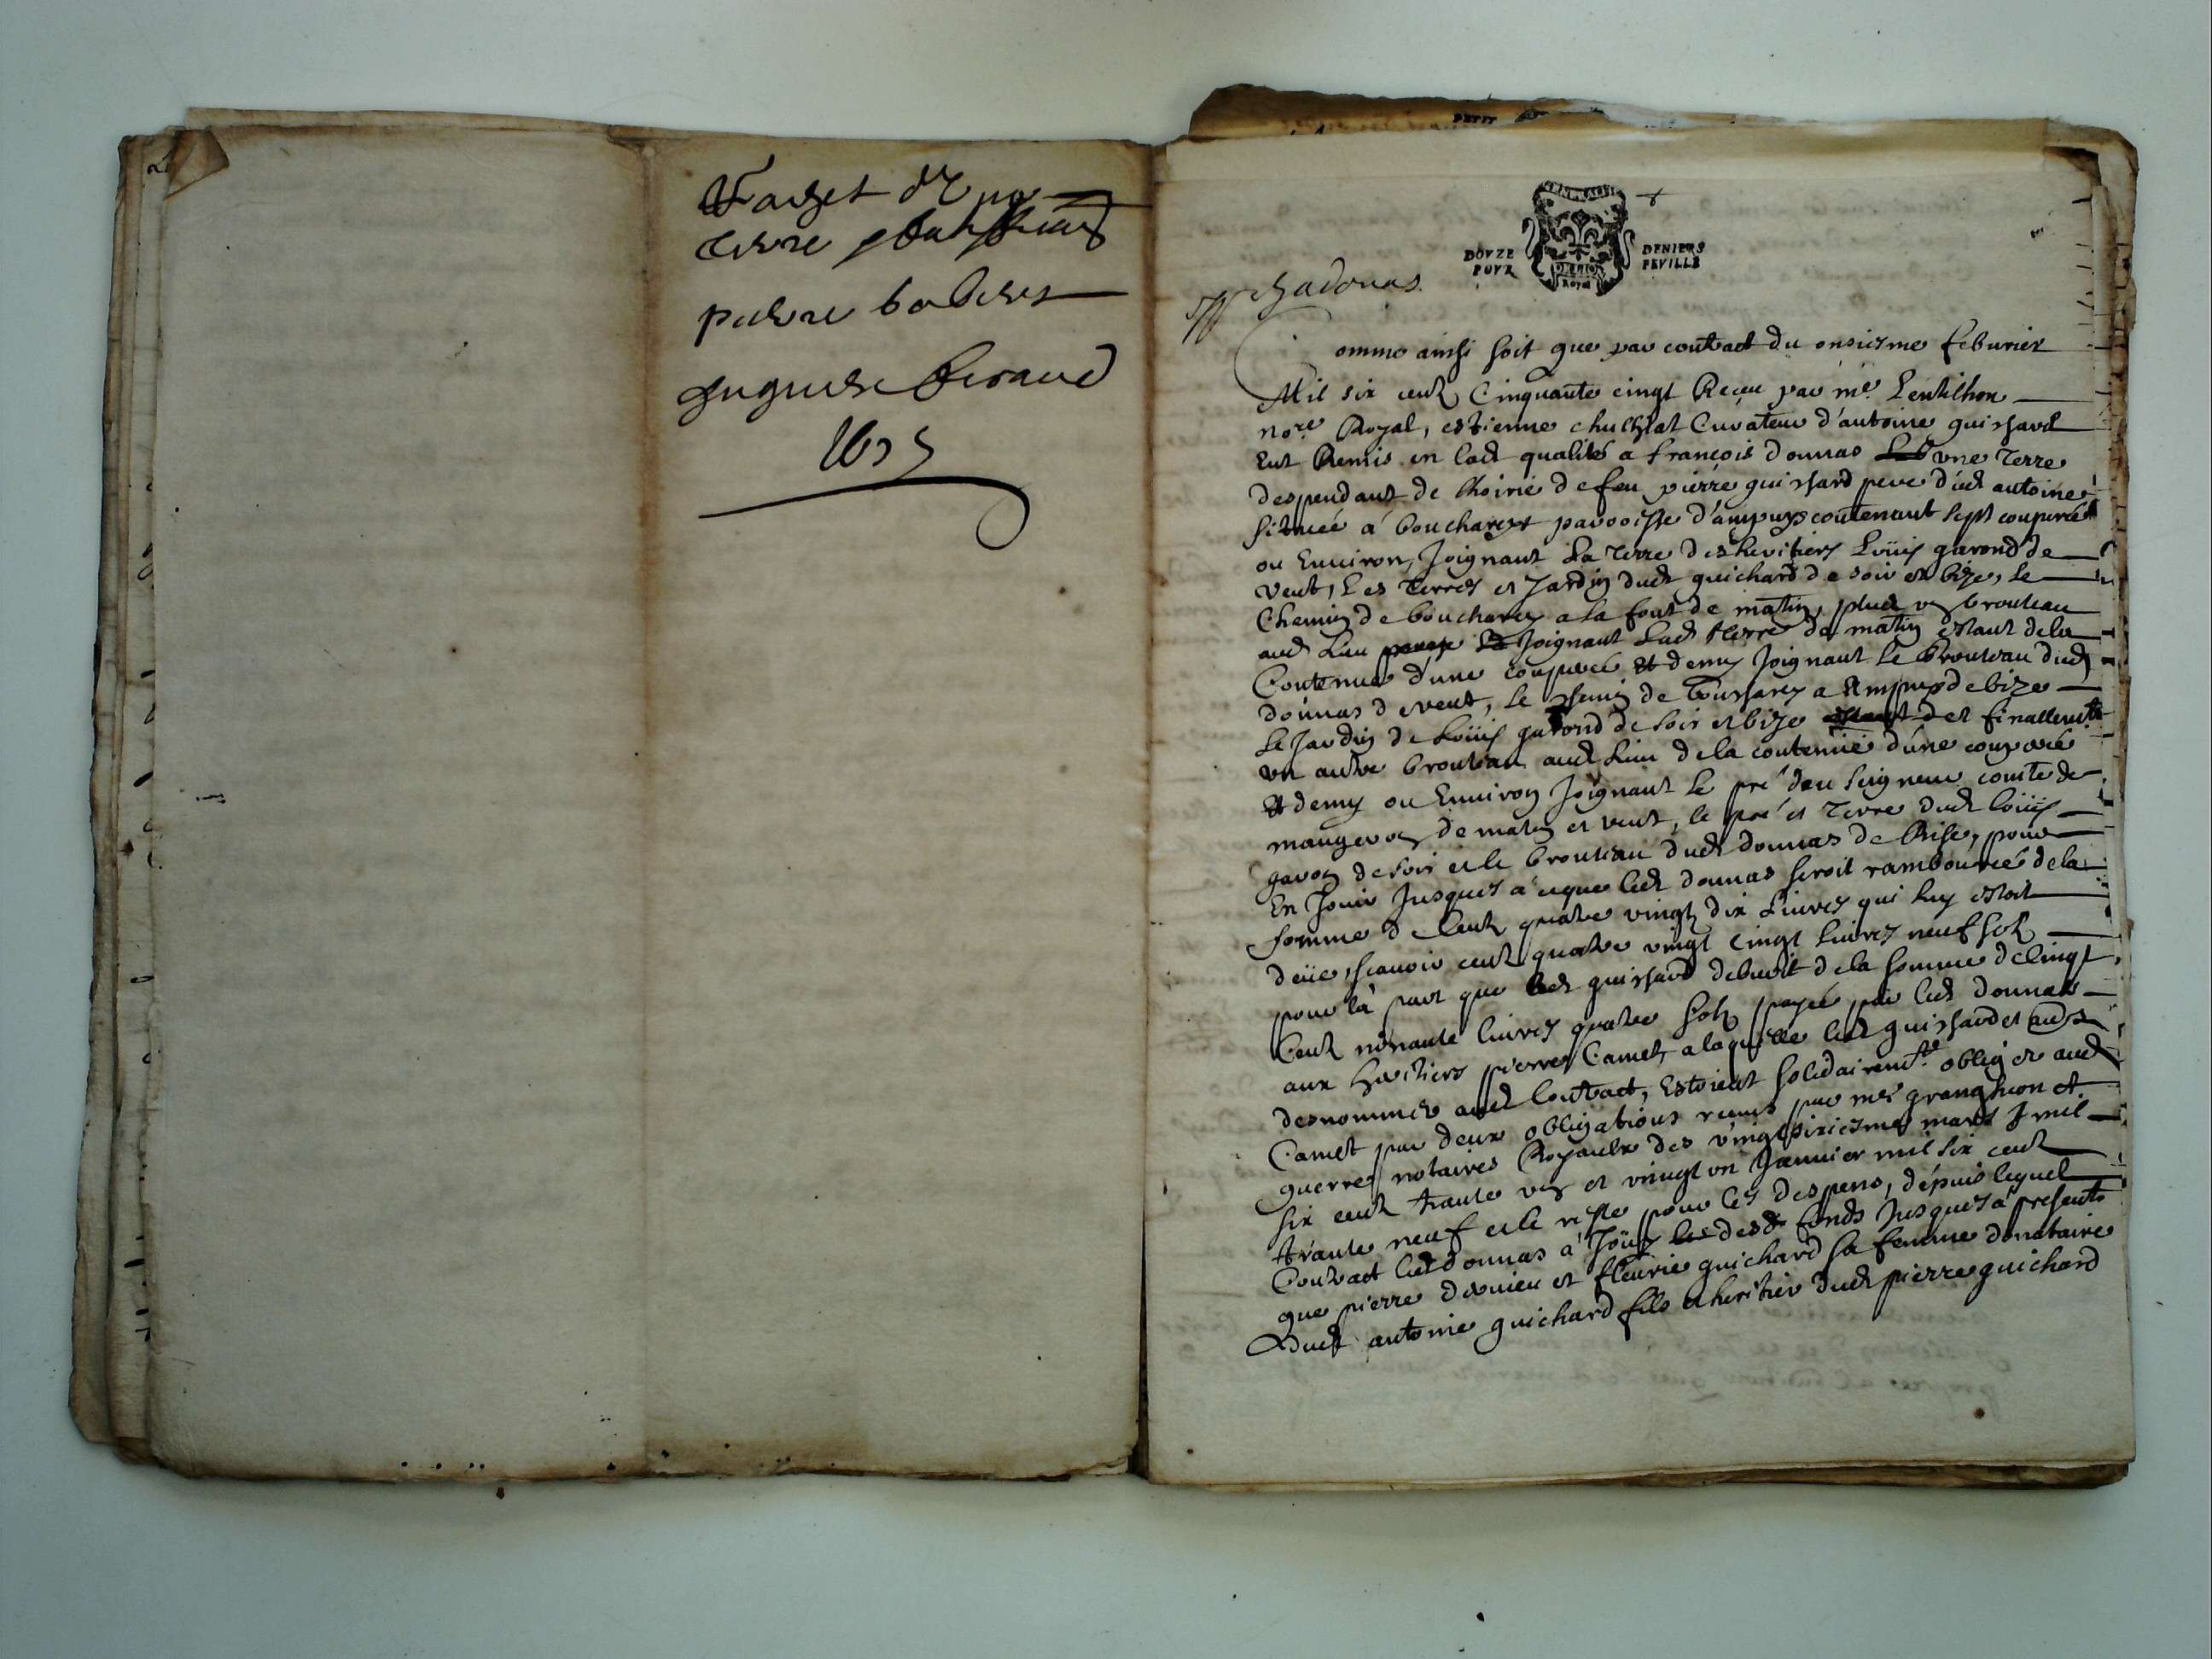 terre
pierre
DOVZE DENIERS
POVR FEVILLE
omme ainsi soit que par contract du onsiesme feburier
Mil six centz Cinquante cinqt Receu par me. Lentilhon
nore. Royal, estienne chullhiat Curateur d'antoine guichard
Eut Remis en lad qualité a françois donnas une Terre
despendant de lhoirie de feu pierre guichard pere dud antoine
situeé à boucharey parroisse d'ampuys contenant sept couppeés
ou Enuiron, Joignant La terre des heritiers Loüis garond de
vent, Les Terres et Jardin dud guichard de soir et bize, le
Chemin de boucharey a la font de matin, plus un brouteau
aud Lieu Joignant Lad terre de matin estant de la
Contenue d'une coupeé et demy Joignant le brouteau dud
donnas de vent, le chemin de boucharey a Ampuys de bize
Le Jardin de Loüis garond de soir et bize et finallemt
un autre brouteau aud Lieu de la contenue d'une coupeé
et demy ou Enuiron Joignant le pré du seigneur comte de
maugeron de matin et vent, le pré et Terre dud loüis
garon de soir et le brouteau dud donnas de Bise, pour
En Jouir Jusques à ceque led donnas seroit rambourcé de la
somme de Centz quatre vingtz dix Liures qui luy estoit
deüe, scauoir centz quatre vingt cinqt Liures neuf solz
pour la part que led guichard debuoit de la somme de Cinqt
Centz nonante liures quatre solz payée par led donnas
aux heritiers pierre Camet, a laquelle led guichard et
desnommés aud Contract, Estoient solidairemt. obligés aud
Camet par deux obligations receus par mes granghon et
guerre notaires Royaulx des vingtsixiesme mars mil
six centz trante un et vingt un Januier mil six centz
trante neuf et le reste pour les despens, dépuis lequel
Contract led donnas à Joüy desd fonds Jusques à present
que pierre et fleurie guichard sa femme donataire
dud antoine guichard fils et heritier dud pierre guichard